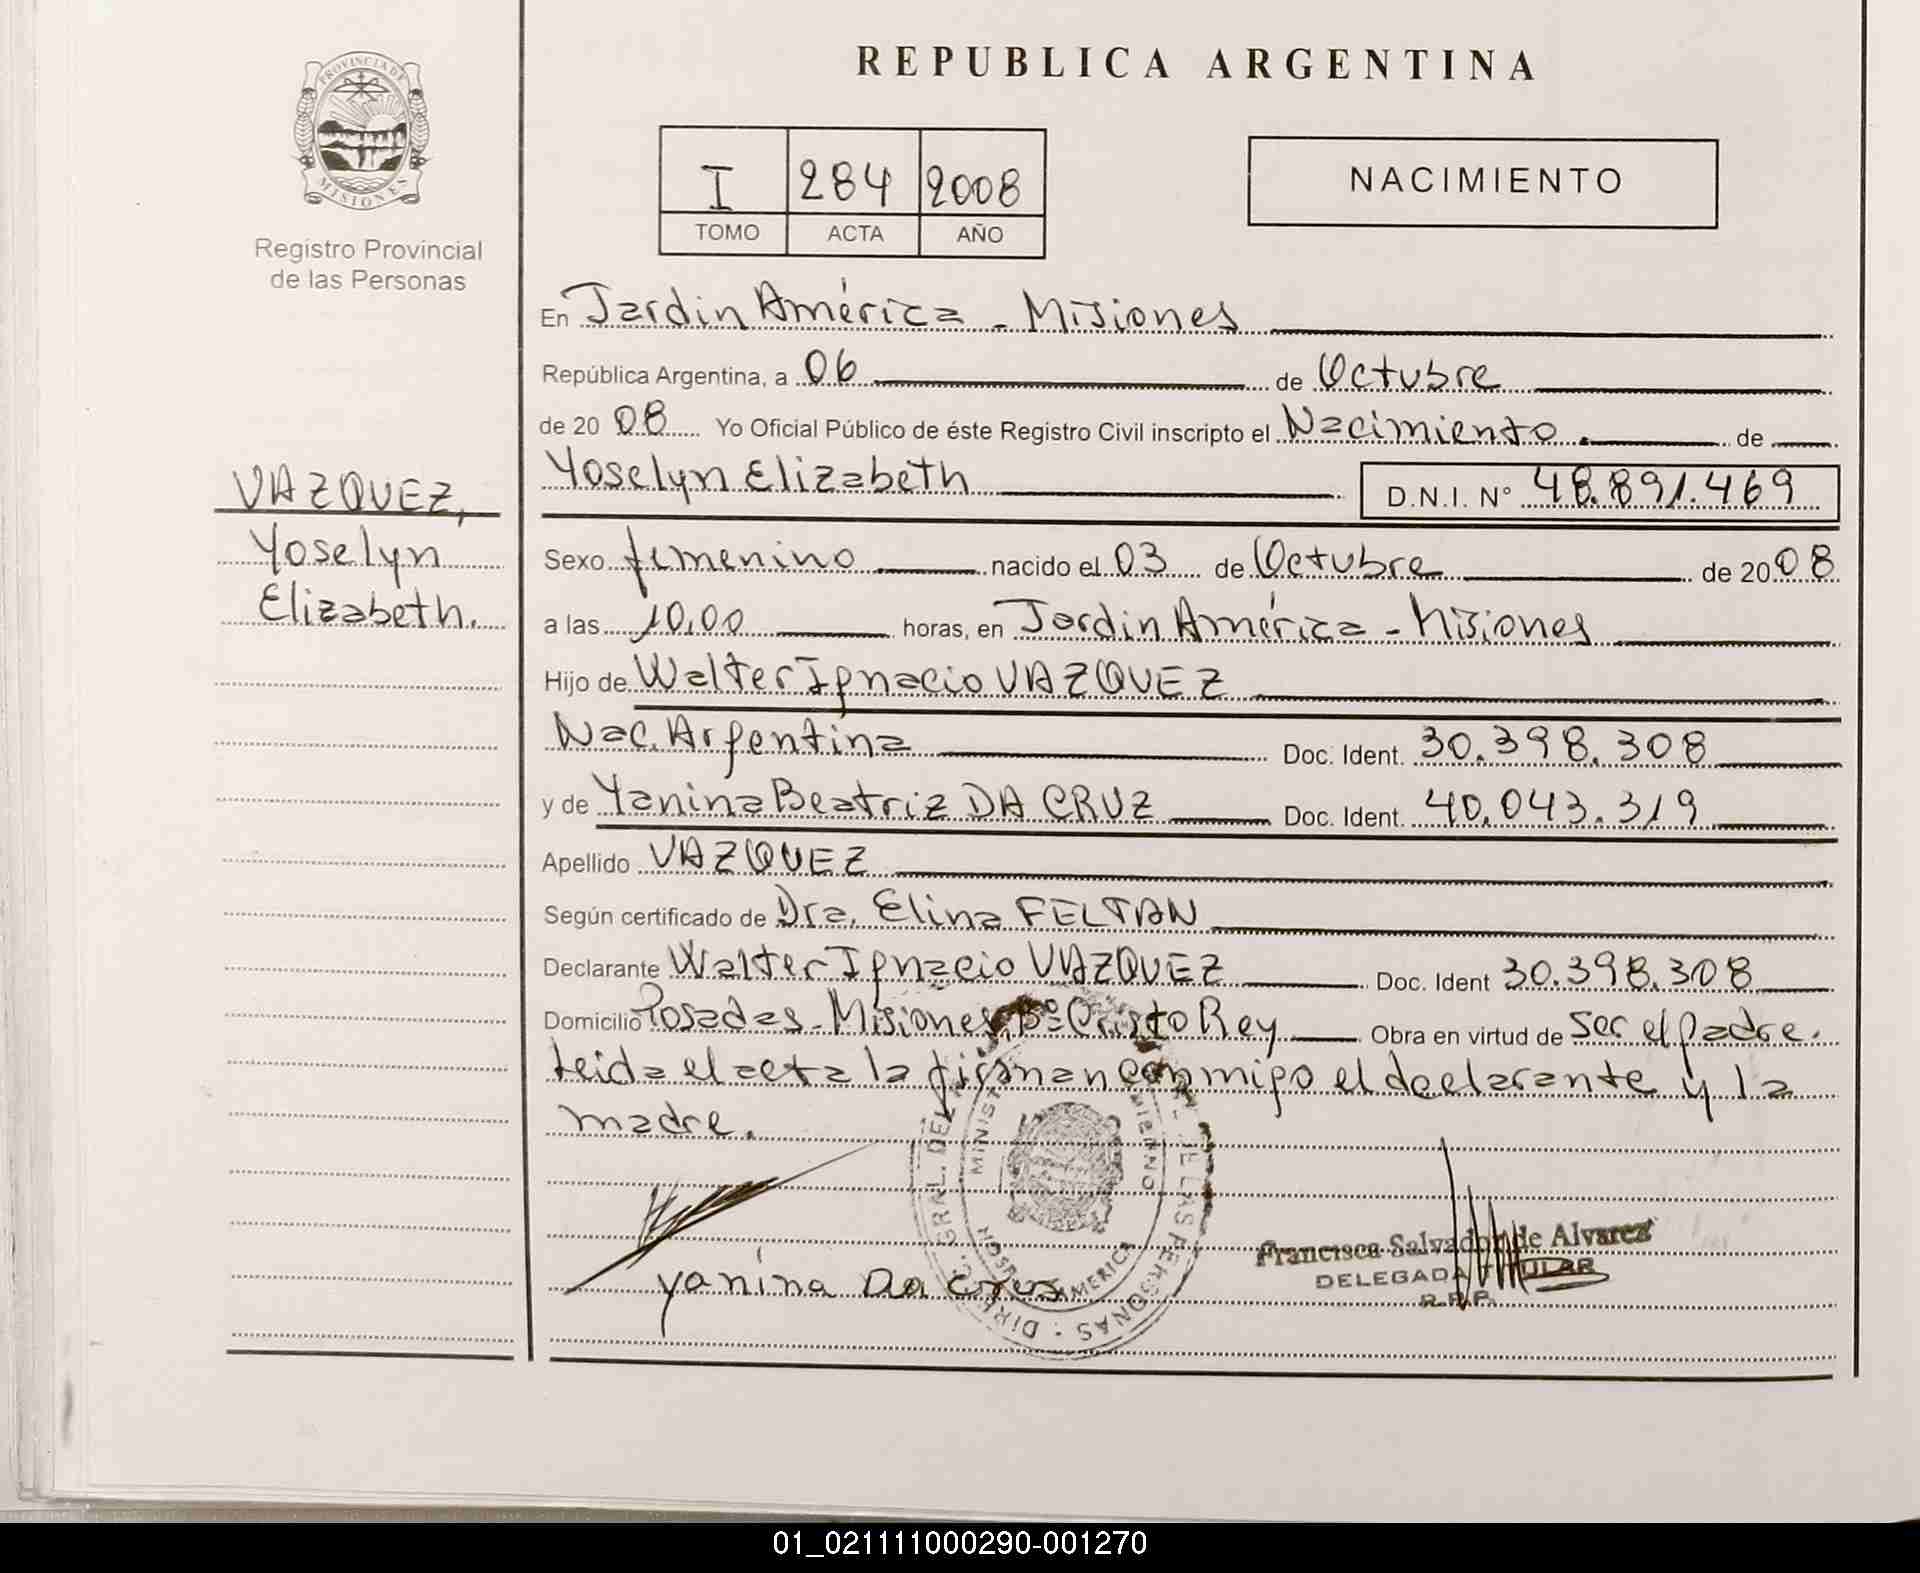 REPUBLICA ARGENTINA
PROVINCIA DE MISIONES
Registro Provincial
de las Personas
I 284 2008
TOMO ACTA AÑO
NACIMIENTO
VAZQUEZ,
Yoselyn
Elizabeth.
En Jardin América - Misiones
República Argentina, a 06 de Octubre
de 2008 Yo Oficial Público de éste Registro Civil inscripto el Nacimiento de
Yoselyn Elizabeth D.N.I. N° 48.891.469
Sexo femenino nacido el 03 de Octubre de 2008
a las 10,00 horas, en Jardin América - Misiones
Hijo de Walter Ignacio VAZQUEZ
Nac. Argentina Doc. Ident. 30.398.308
y de Yanina Beatriz DA CRUZ Doc. Ident. 40.043.319
Apellido VAZQUEZ
Según certificado de Dra. Elina FELTAN
Declarante Walter Ignacio VAZQUEZ Doc. Ident 30.398.308
Domicilio Posadas - Misiones B° Cristo Rey Obra en virtud de ser el padre.
Leida el acta la firman conmigo el declarante y la
madre.
yanina Da Crus
Francisca Salvador de Alvarez
DELEGADA TITULAR
R.P.P.
01_021111000290-001270